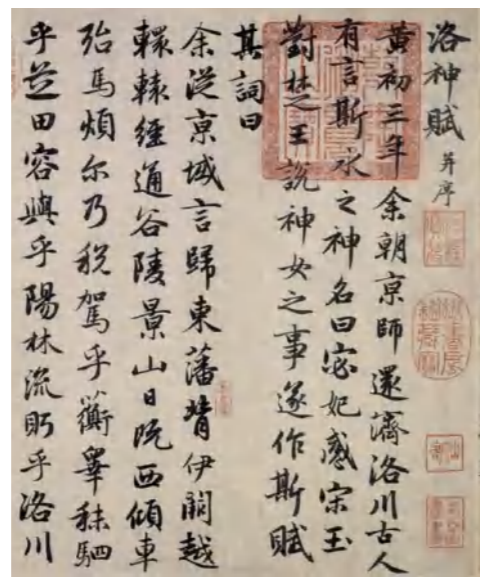 洛神賦 并序
黃初三年余朝京師還濟洛川古人
有言斯水之神名曰宓妃感宋玉
對楚王說神女之事遂作斯賦
其詞曰
余從京域言歸東藩背伊闕越
轘轅經通谷陵景山日既西傾車
殆馬煩尔乃稅駕乎蘅皋秣駟
乎芝田容與乎陽林流眄乎洛川